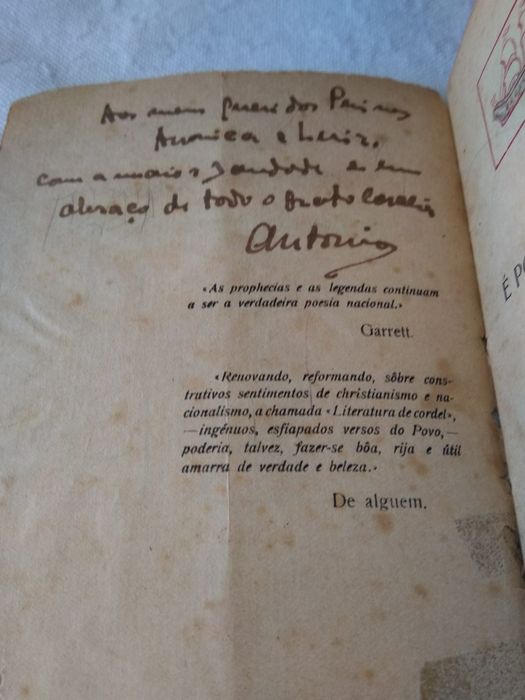 Aos meus queridos Primos
Annica e Luiz,
com a maior saudade e um
abraço de todo o
Antonio
«As prophecias e as legendas continuam
a ser a verdadeira poesia nacional.»
Garrett.
«Renovando, reformando, sôbre cons-
trutivos sentimentos de christianismo e na-
cionalismo, a chamada «Literatura de cordel»,
—ingénuos, esfiapados versos do Povo,—
poderia, talvez, fazer-se bôa, rija e útil
amarra de verdade e beleza.»
De alguem.
É P